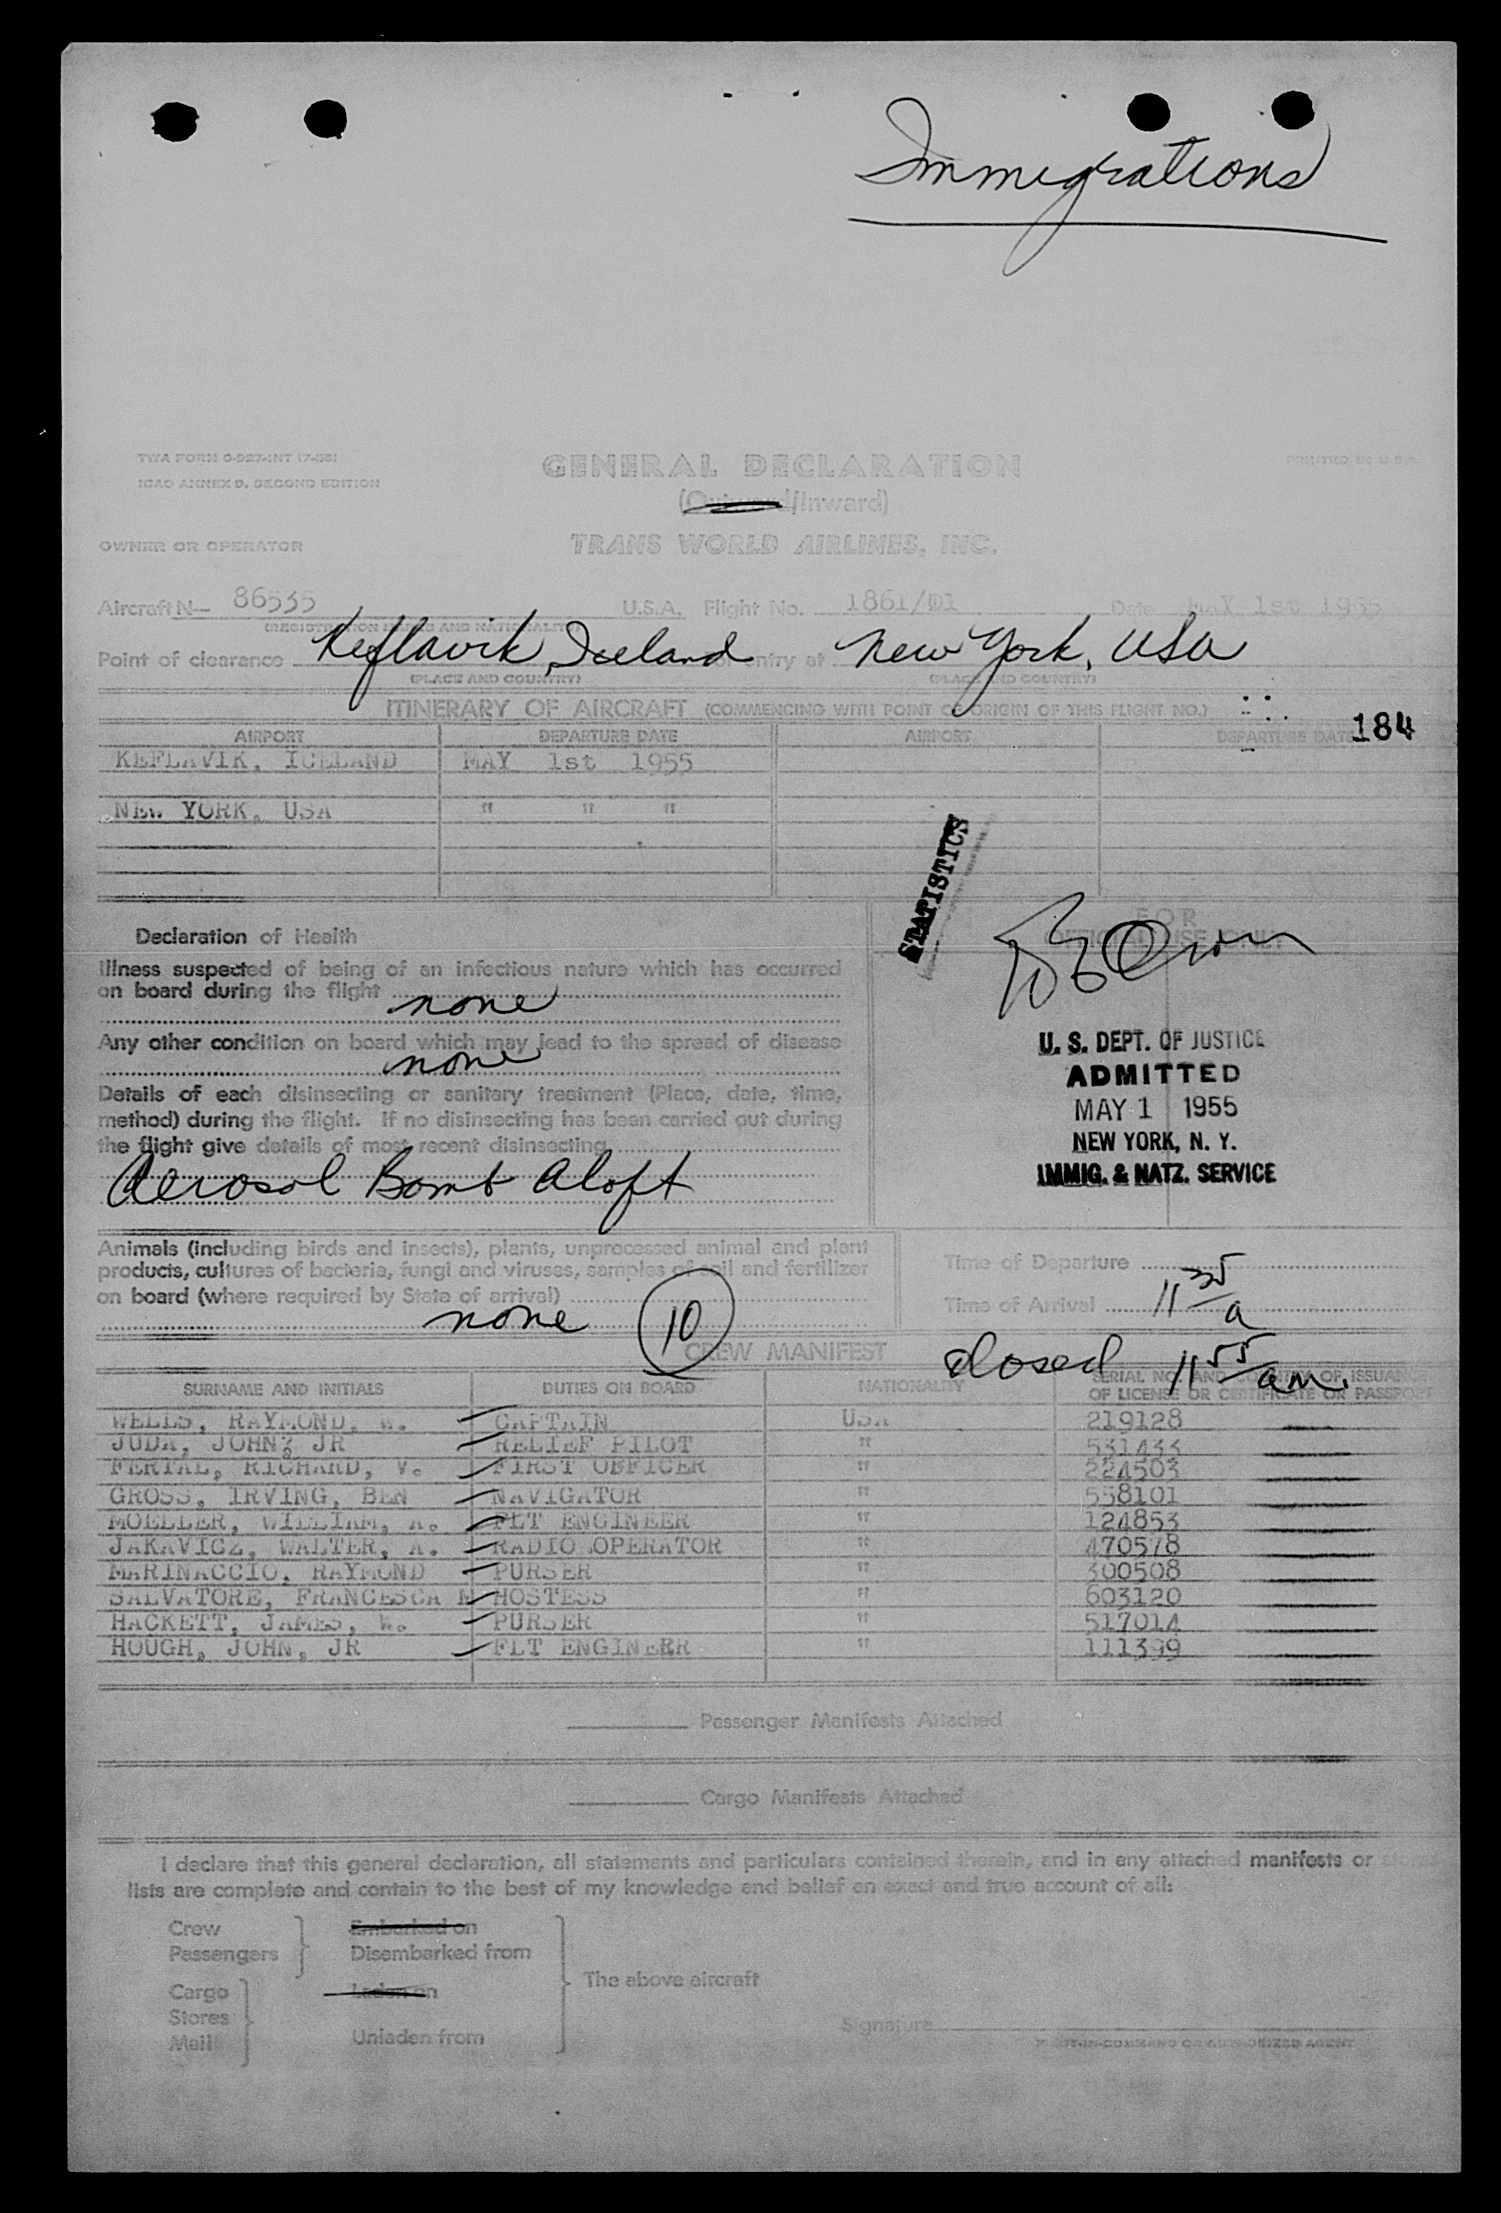 Immigrations
TWA FORM
ICAO ANNEX 9, SECOND EDITION
GENERAL DECLARATION
PRINTED IN U.S.A.
(Outward/Inward)
OWNER OR OPERATOR
TRANS WORLD AIRLINES, INC.
Aircraft N— 86535 U.S.A. Flight No. 1861/01 Date MAY 1st 1955
Point of clearance Keflavik, Iceland entry at New York, USA
(PLACE AND COUNTRY) (PLACE AND COUNTRY)
ITINERARY OF AIRCRAFT (COMMENCING WITH POINT OF ORIGIN OF THIS FLIGHT NO.)
184
AIRPORT DEPARTURE DATE AIRPORT DEPARTURE DATE
KEFLAVIK, ICELAND MAY 1st 1955
NEW YORK, USA " " "
STATISTICS
Declaration of Health
FOR
OFFICIAL USE ONLY
Illness suspected of being of an infectious nature which has occurred
on board during the flight none
Any other condition on board which may lead to the spread of disease
none
Details of each disinsecting or sanitary treatment (Place, date, time,
method) during the flight. If no disinsecting has been carried out during
the flight give details of most recent disinsecting
Aerosol Bomb Aloft
U. S. DEPT. OF JUSTICE
ADMITTED
MAY 1 1955
NEW YORK, N. Y.
IMMIG. & NATZ. SERVICE
Animals (including birds and insects), plants, unprocessed animal and plant
products, cultures of bacteria, fungi and viruses, samples of soil and fertilizer
on board (where required by State of arrival)
none 10
Time of Departure
Time of Arrival 11 35/a
closed 11 55/am.
CREW MANIFEST
SURNAME AND INITIALS DUTIES ON BOARD NATIONALITY SERIAL NO. AND COUNTRY OF ISSUANCE
OF LICENSE OR CERTIFICATE OR PASSPORT
WELLS, RAYMOND, W. CAPTAIN USA 219128
JUDA, JOHN, JR RELIEF PILOT " 531433
FERTAL, RICHARD, V. FIRST OFFICER " 224503
GROSS, IRVING, BEN NAVIGATOR " 558101
MOELLER, WILLIAM, A. FLT ENGINEER " 124853
JAKAVICZ, WALTER, A. RADIO OPERATOR " 470578
MARINACCIO, RAYMOND PURSER " 300508
SALVATORE, FRANCESCA M HOSTESS " 603120
HACKETT, JAMES, W. PURSER " 517014
HOUGH, JOHN, JR FLT ENGINERR " 111399
Passenger Manifests Attached
Cargo Manifests Attached
I declare that this general declaration, all statements and particulars contained therein, and in any attached manifests or stores
lists are complete and contain to the best of my knowledge and belief an exact and true account of all:
Crew Embarked on
Passengers Disembarked from
The above aircraft
Cargo Laden on
Stores
Mail Unladen from
Signature
PILOT-IN-COMMAND OR AUTHORIZED AGENT